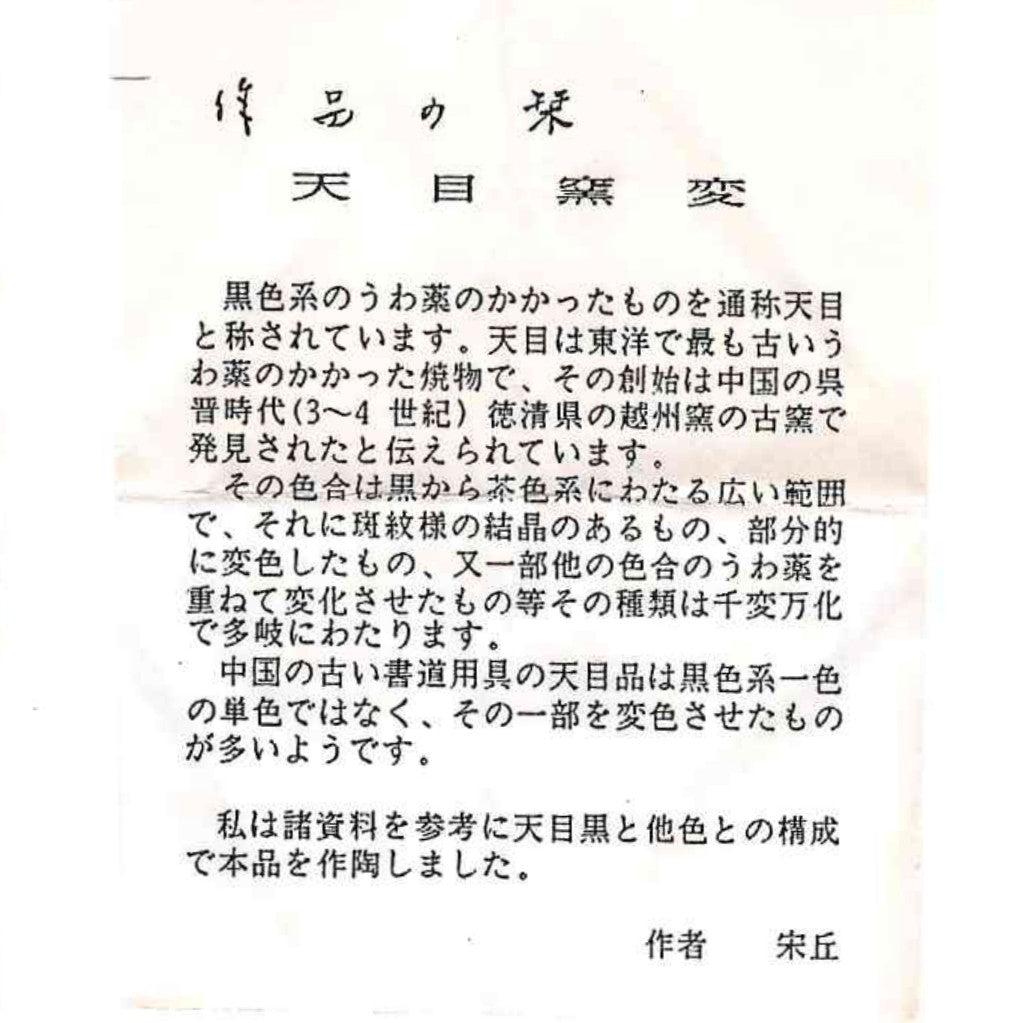 作品の栞
天目窯変
黒色系のうわ薬のかかったものを通称天目
と称されています。天目は東洋で最も古いう
わ薬のかかった焼物で、その創始は中国の呉
晋時代(3〜4 世紀) 徳清県の越州窯の古窯で
発見されたと伝えられています。
その色合は黒から茶色系にわたる広い範囲
で、それに斑紋様の結晶のあるもの、部分的
に変色したもの、又一部他の色合のうわ薬を
重ねて変化させたもの等その種類は千変万化
で多岐にわたります。
中国の古い書道用具の天目品は黒色系一色
の単色ではなく、その一部を変色させたもの
が多いようです。
私は諸資料を参考に天目黒と他色との構成
で本品を作陶しました。
作者 宋丘